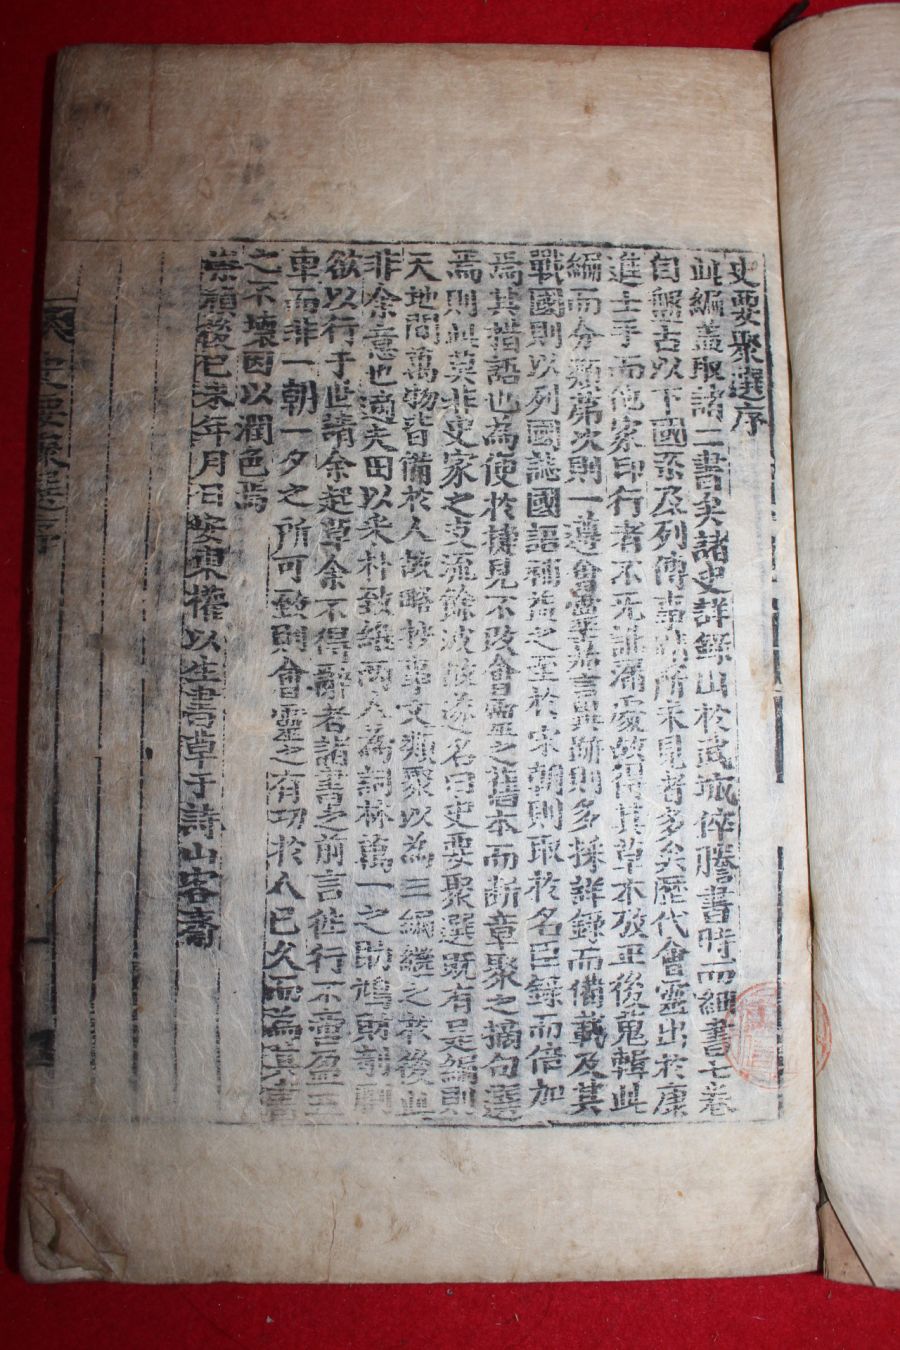 史要聚選序
此編蓋取諸二書矣諸史詳錄出於武城倅謄書時而細書七卷
自盤古以下國系及列傳事跡所未見者多矣歷代會靈出於康
進士手而他家印行者不无訛漏處故得其草本攷正後蒐輯此
編而分類第次則一遵會靈業嘉言異跡則多採詳錄而備載及其
戰國則以列國誌國語補益之至於宋朝則取於名臣錄而倍加
焉其措語也為便於捷見不改會靈之舊本而斷章聚之摘句選
焉則此莫非史家之支流餘波故遂名曰史要聚選既有是編則
天地間萬物皆備於人故略抄事文類聚以為三編繼之於後此
非余意也適夫田以采朴致維兩人為詞林萬一之助鳩財剞劂
欲以行于世請余起草余不得辭者諸書之前言徃行不啻盈五
車而非一朝一夕之所可致則會靈之有功於人已久而為冥書
之不壞因以潤色焉
崇禎後己未年月日安東權以生書草于詩山客齋
史要聚選序